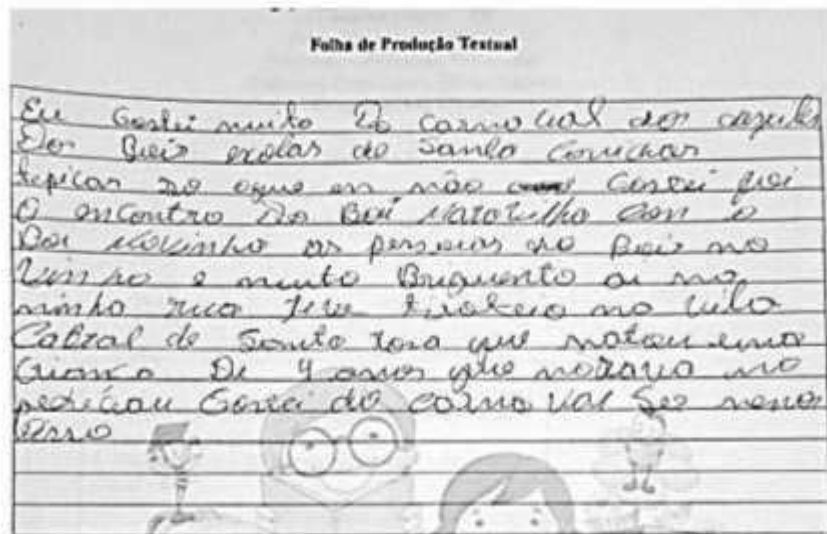 Folha de Produção Textual
Eu Gostei muito Do carnaval dos
Dos Bois escolas de Samba
tipicas So oque eu não Gostei foi
O encontro Do Boi Marotinho com o
Boi Novinho as pessoas do Boi no
vinho e muito Briguento ai na
minha rua teve tiroteio na vila
Cabral de Santo rosa que matou uma
crianca De 4 anos que morava no
Gostei do carna val Seo